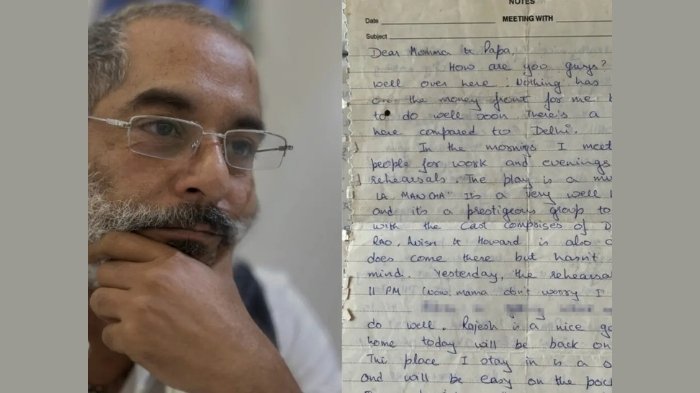 NOTES
Date
MEETING WITH
Subject
Dear Momma & Papa,
How are you guys?
well over here. Nothing has
on the money front for me
to do well soon. There's a
here compared to Delhi.
In the mornings I meet
people for work and evenings
rehearsals. The play is a
LA MANCHA" Its a very well
and its a prestigeous group to
with the cast comprises of D
Rao, Avish & Howard is also
does come there but hasn't
mind. Yesterday, the rehearsa
11 PM (now mama don't worry I
do well. Rajesh is a nice
home today will be back on
The place I stay in is a
and will be easy on the poc